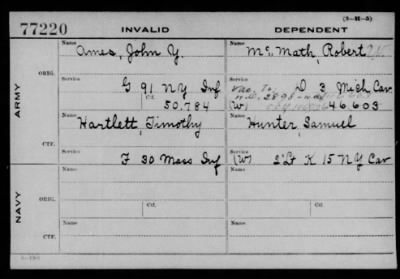 (3-H-5)
77220 INVALID DEPENDENT
Name Name
Ames, John Y. McMath, Robert
ORIG.
Service Service
G 91 N.Y. Inf D 3 Mich Cav
Ctf. 50.784 (W) 46603
ARMY
Name Name
Hartlett, Timothy Hunter, Samuel
CTF.
Service Service
F 30 Mass Inf (W) 2"Lt K 15 N.Y. Cav
Name Name
NAVY
ORIG.
Ctf. Ctf.
Name Name
CTF.